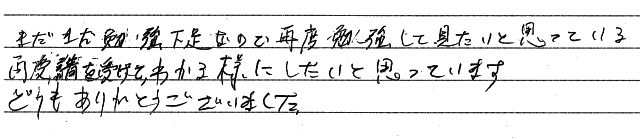 まだまだ勉強不足なので再度勉強して見たいと思っている
再度講を受け、わかる様にしたいと思っています
どうもありがとうございました